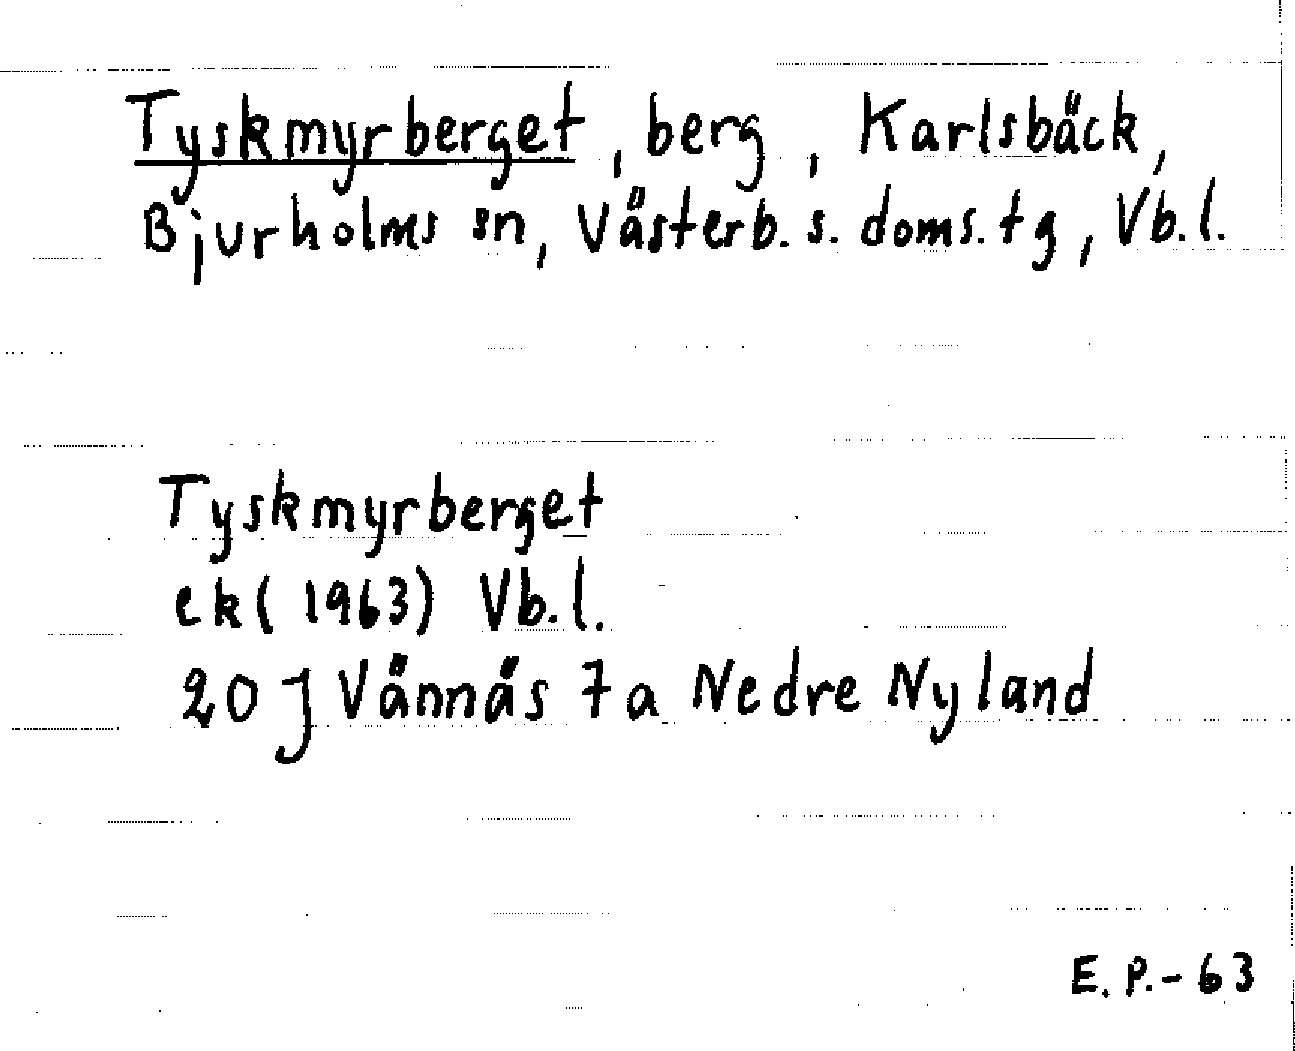 Tyskmyrberget, berg, Karlsbäck,
Bjurholms sn, Västerb. s. doms. tg, Vb. l.
Tyskmyrberget
ek (1963) Vb. l.
20 J Vännäs 7a Nedre Nyland
E. P. - 63